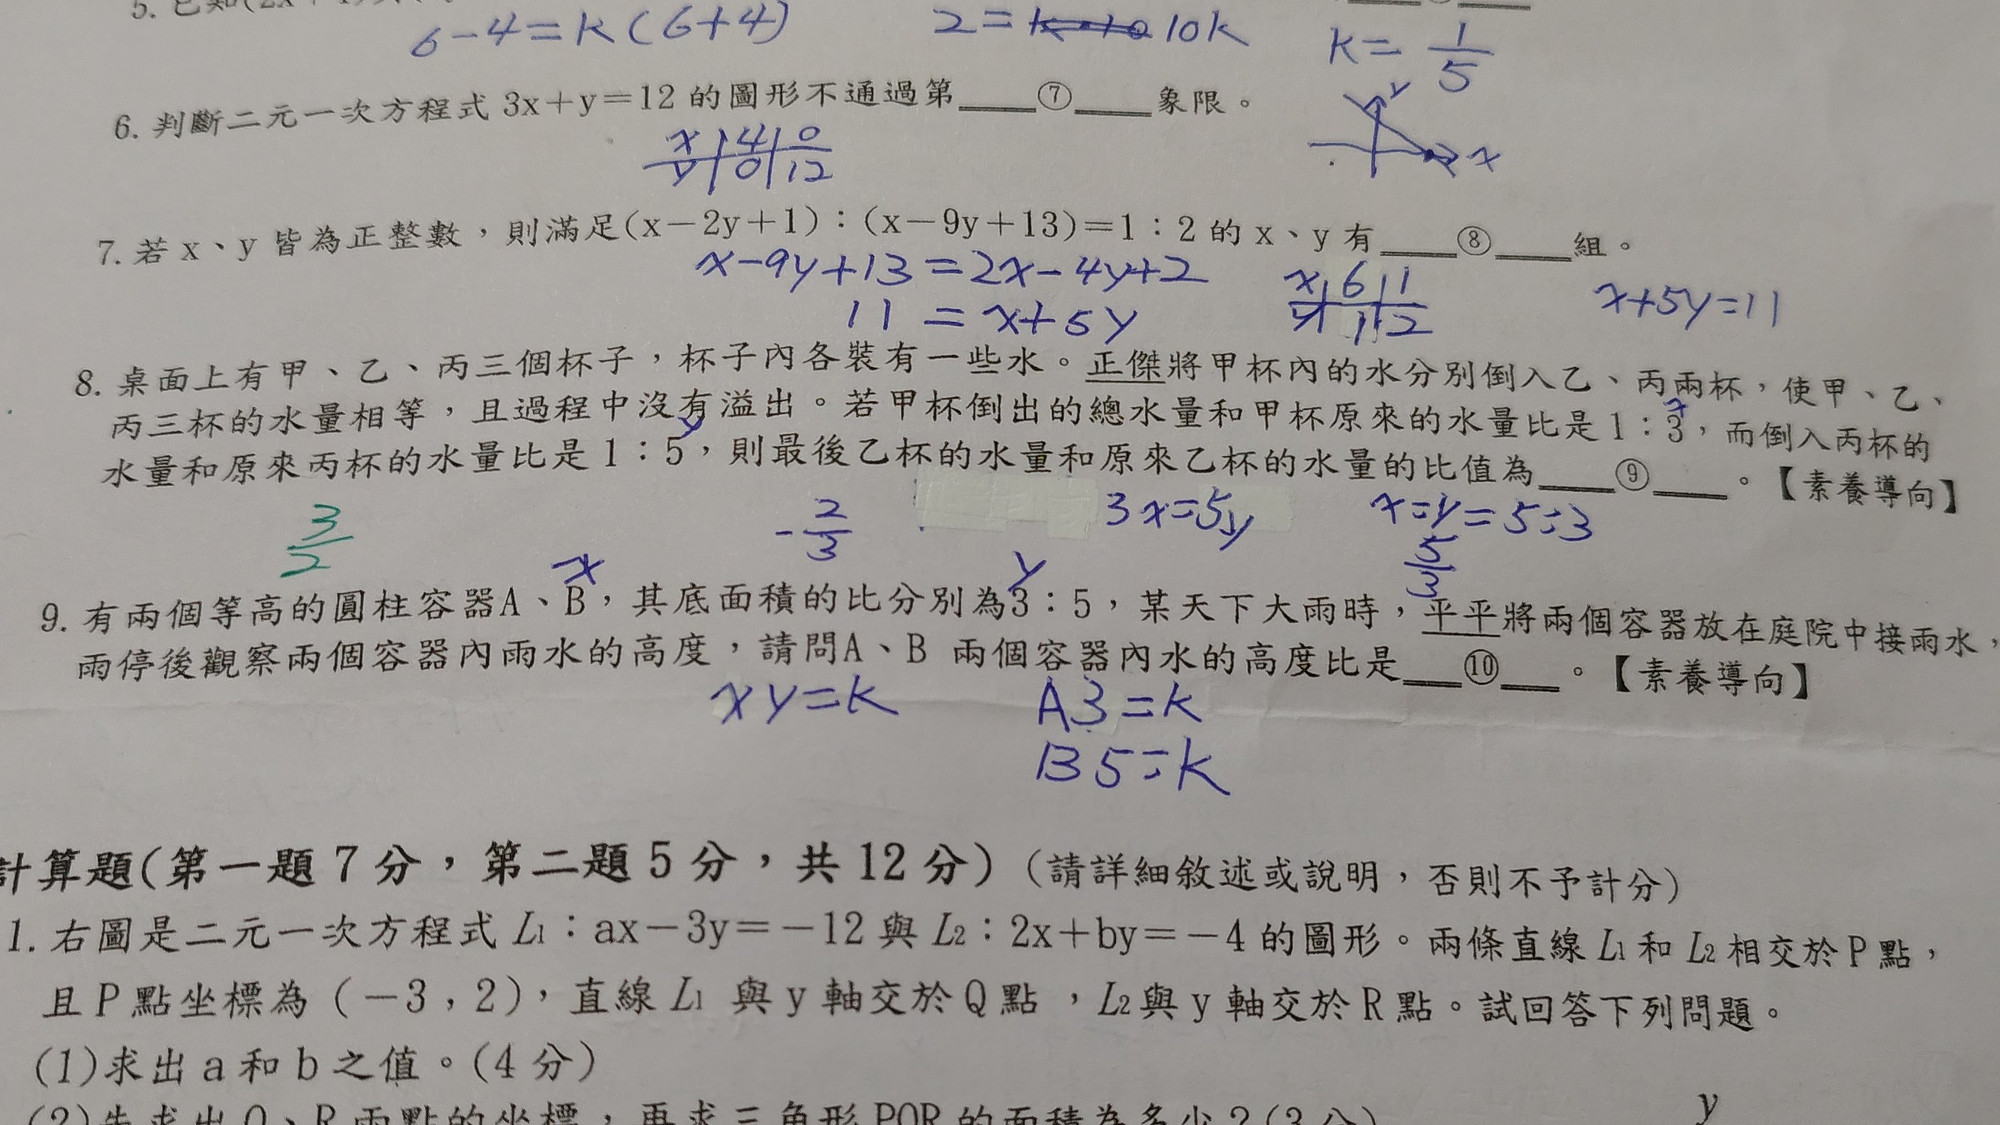 5. 已知(2x
6-4=k(6+4) 2=10k k=1/5
6. 判斷二元一次方程式 3x+y=12 的圖形不通過第____⑦____象限。
x 4 0
y 0 12
y
x
7. 若 x、y 皆為正整數，則滿足(x-2y+1)：(x-9y+13)=1：2 的 x、y 有____⑧____組。
x-9y+13=2x-4y+2
11=x+5y
x 6 1
y 1 2
x+5y=11
8. 桌面上有甲、乙、丙三個杯子，杯子內各裝有一些水。正傑將甲杯內的水分別倒入乙、丙兩杯，使甲、乙、
丙三杯的水量相等，且過程中沒有溢出。若甲杯倒出的總水量和甲杯原來的水量比是 1：3，而倒入丙杯的
水量和原來丙杯的水量比是 1：5，則最後乙杯的水量和原來乙杯的水量的比值為____⑨____。【素養導向】
x
y
3/2 -2/3 3x=5y x:y=5:3
5/3
x y
9. 有兩個等高的圓柱容器A、B，其底面積的比分別為3：5，某天下大雨時，平平將兩個容器放在庭院中接雨水，
雨停後觀察兩個容器內雨水的高度，請問A、B 兩個容器內水的高度比是___⑩___。【素養導向】
xy=k A3=k
B5=k
計算題(第一題 7 分，第二題 5 分，共 12 分)(請詳細敘述或說明，否則不予計分)
1. 右圖是二元一次方程式 L1：ax-3y=-12 與 L2：2x+by=-4 的圖形。兩條直線 L1 和 L2 相交於 P 點，
且 P 點坐標為（-3，2），直線 L1 與 y 軸交於 Q 點，L2與 y 軸交於 R 點。試回答下列問題。
(1)求出 a 和 b 之值。(4 分)
(2)先求出 Q、R 兩點的坐標，再求三角形 PQR 的面積為多少？(3 分)
y